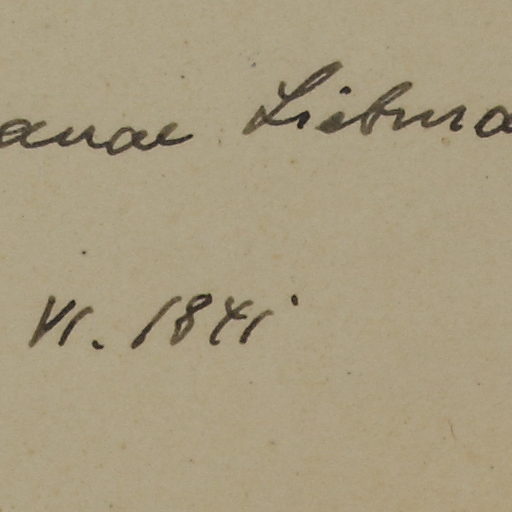 anae Liebma
VI. 1841